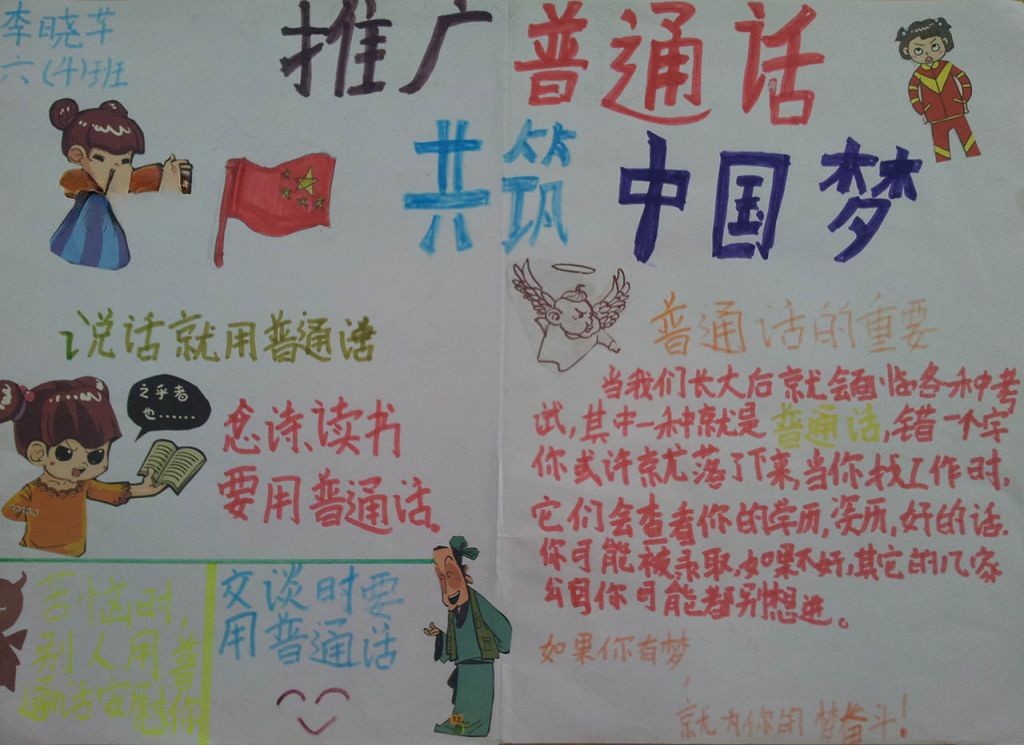 李晓芊
六(4)班
推广普通话
共筑中国梦
说话就用普通话
之乎者
也......
念诗、读书
要用普通话。
苦恼时,
别人用普
通话安慰你
交谈时要
用普通话
普通话的重要
当我们长大后就会面临各种考
试,其中一种就是普通话,错一个字
你或许就落了下来,当你找工作时,
它们会查看你的学历,资历,好的话.
你可能被录取,如果不好,其它的几家
公司你可能都别想进。
如果你有梦,
就为你的梦奋斗!